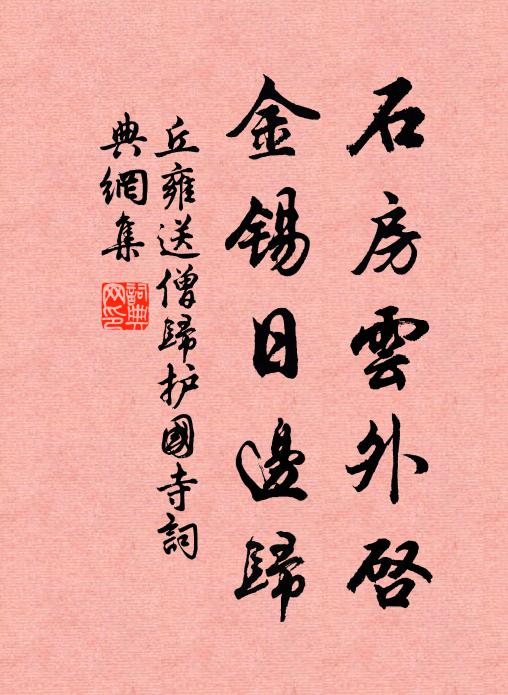 石房雲外啓
金锡日邊歸
丘雍送僧歸护國寺詞
典網集
詞典
网印